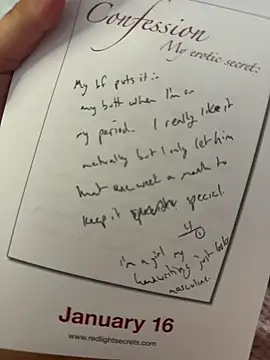 Confession
My erotic secret:
My bf puts it in
my butt when I'm on
my period. I really like it
actually but I only let him
that one week a month to
keep it special.
I'm a girl my
handwriting just looks
masculine
January 16
www.redlightsecrets.com